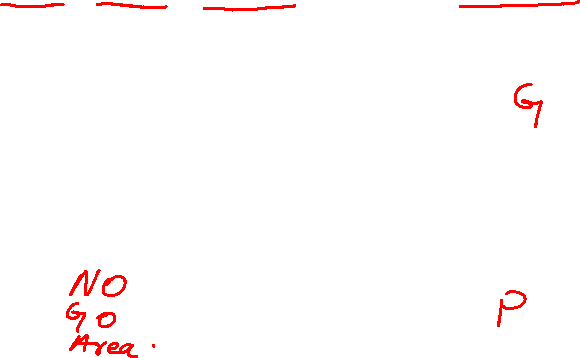 G
NO
GO
Area.
P